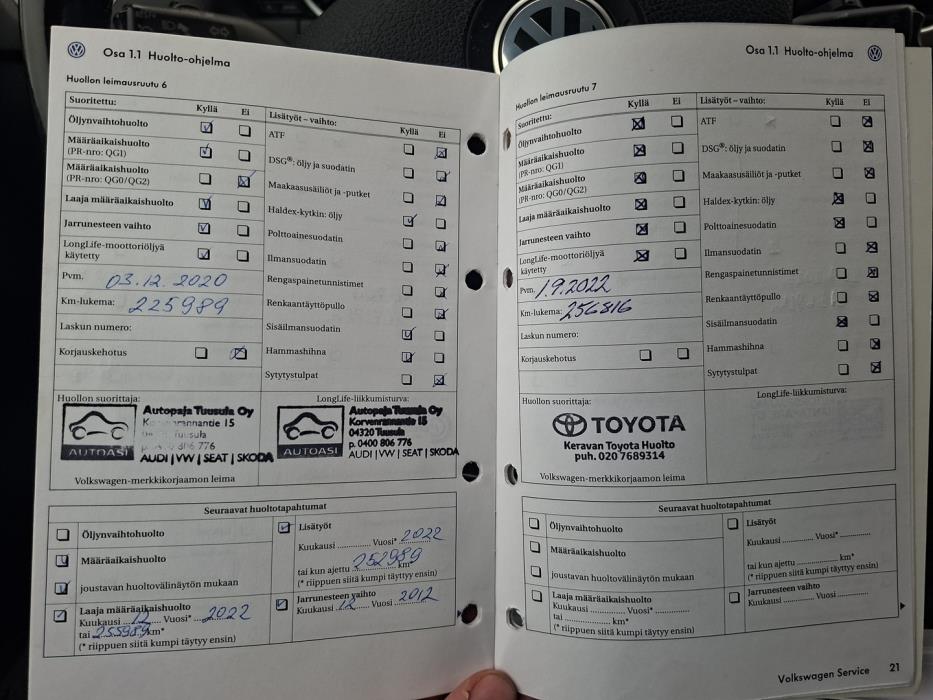 Osa 1.1 Huolto-ohjelma
Huollon leimausruutu 6
Suoritettu: Kyllä Ei
Öljynvaihtohuolto
Määräaikaishuolto
(PR-nro: QG1)
Määräaikaishuolto
(PR-nro: QG0/QG2)
Laaja määräaikaishuolto
Jarrunesteen vaihto
LongLife-moottoriöljyä
käytetty
Pvm. 03.12.2020
Km-lukema: 225989
Laskun numero:
Korjauskehotus
Lisätyöt – vaihto: Kyllä Ei
ATF
DSG®: öljy ja suodatin
Maakaasusäiliöt ja -putket
Haldex-kytkin: öljy
Polttoainesuodatin
Ilmansuodatin
Rengaspainetunnistimet
Renkaantäyttöpullo
Sisäilmansuodatin
Hammashihna
Sytytystulpat
Huollon suorittaja:
AUTOASI
Autopaja Tuusula Oy
15
Tuusula
776
AUDI | VW | SEAT | SKODA
Volkswagen-merkkikorjaamon leima
LongLife-liikkumisturva:
AUTOASI
Autopaja Tuusula Oy
Korvenrannantie 15
04320 Tuusula
p. 0400 806 776
AUDI | VW | SEAT | SKODA
Seuraavat huoltotapahtumat
Öljynvaihtohuolto
Määräaikaishuolto
joustavan huoltovälinäytön mukaan
Laaja määräaikaishuolto
Kuukausi 12 Vuosi* 2022
tai 255989 km*
(* riippuen siitä kumpi täytyy ensin)
Lisätyöt
Kuukausi .............. Vuosi* 2022
tai kun ajettu 252989 km*
(* riippuen siitä kumpi täyttyy ensin)
Jarrunesteen vaihto
Kuukausi 12 Vuosi 2012
Osa 1.1 Huolto-ohjelma
Huollon leimausruutu 7
Suoritettu: Kyllä Ei
Öljynvaihtohuolto
Määräaikaishuolto
(PR-nro: QG1)
Määräaikaishuolto
(PR-nro: QG0/QG2)
Laaja määräaikaishuolto
Jarrunesteen vaihto
LongLife-moottoriöljyä
käytetty
Pvm. 1.9.2022
Km-lukema: 256816
Laskun numero:
Korjauskehotus
Lisätyöt – vaihto: Kyllä Ei
ATF
DSG®: öljy ja suodatin
Maakaasusäiliöt ja -putket
Haldex-kytkin: öljy
Polttoainesuodatin
Ilmansuodatin
Rengaspainetunnistimet
Renkaantäyttöpullo
Sisäilmansuodatin
Hammashihna
Sytytystulpat
Huollon suorittaja:
TOYOTA
Keravan Toyota Huolto
puh. 020 7689314
Volkswagen-merkkikorjaamon leima
LongLife-liikkumisturva:
Seuraavat huoltotapahtumat
Öljynvaihtohuolto
Määräaikaishuolto
joustavan huoltovälinäytön mukaan
Laaja määräaikaishuolto
Kuukausi .............. Vuosi* ..............
tai .................. km*
(* riippuen siitä kumpi täytyy ensin)
Lisätyöt
Kuukausi .............. Vuosi* ..............
tai kun ajettu .................. km*
(* riippuen siitä kumpi täyttyy ensin)
Jarrunesteen vaihto
Kuukausi .............. Vuosi ..............
Volkswagen Service 21